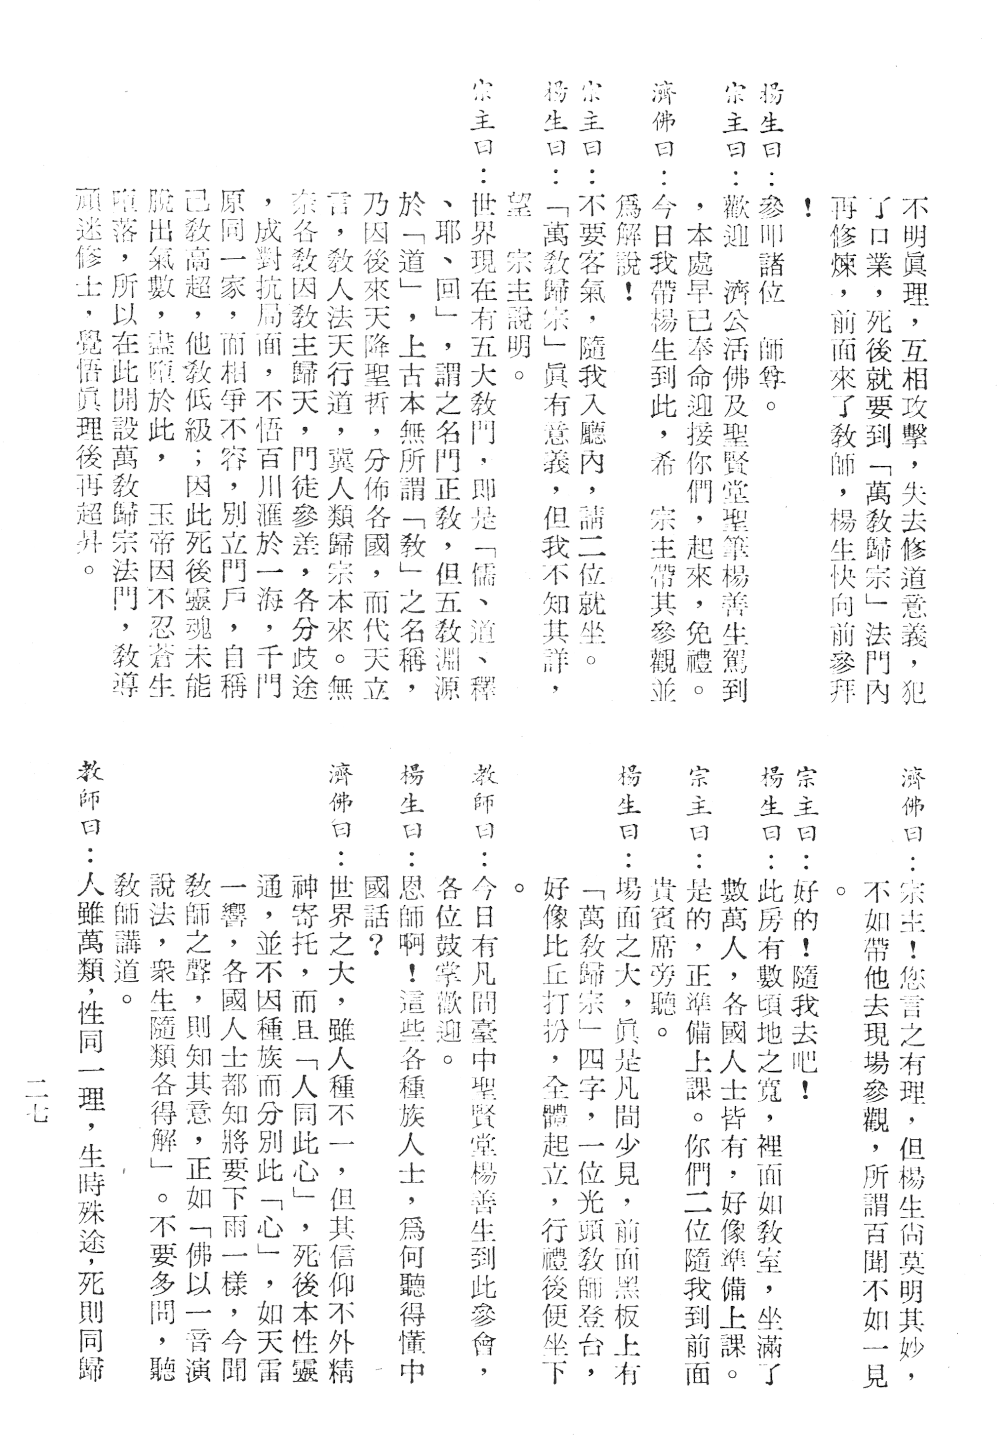 不明眞理，互相攻擊，失去修道意義，犯
了口業，死後就要到「萬敎歸宗」法門內
再修煉，前面來了敎師，楊生快向前參拜
！
楊生曰：參叩諸位　師尊。
宗主曰：歡迎　濟公活佛及聖賢堂聖筆楊善生駕到
，本處早已奉命迎接你們，起來，免禮。
濟佛曰：今日我帶楊生到此，希　宗主帶其參觀並
爲解說！
宗主曰：不要客氣，隨我入廳內，請二位就坐。
楊生曰：「萬敎歸宗」眞有意義，但我不知其詳，
望　宗主說明。
宗主曰：世界現在有五大敎門，即是「儒、道、釋
、耶、回」，謂之名門正敎，但五敎淵源
於「道」，上古本無所謂「敎」之名稱，
乃因後來天降聖哲，分佈各國，而代天立
言，敎人法天行道，冀人類歸宗本來。無
奈各敎因敎主歸天，門徒參差，各分歧途
，成對抗局面，不悟百川滙於一海，千門
原同一家，而相爭不容，別立門戶，自稱
己敎高超，他敎低級；因此死後靈魂未能
脫出氣數，盡墮於此，　玉帝因不忍蒼生
墮落，所以在此開設萬敎歸宗法門，敎導
頑迷修士，覺悟眞理後再超昇。
濟佛曰：宗主！您言之有理，但楊生尙莫明其妙，
不如帶他去現場參觀，所謂百聞不如一見
。
宗主曰：好的！隨我去吧！
楊生曰：此房有數頃地之寬，裡面如敎室，坐滿了
數萬人，各國人士皆有，好像準備上課。
宗主曰：是的，正準備上課。你們二位隨我到前面
貴賓席旁聽。
楊生曰：場面之大，眞是凡間少見，前面黑板上有
「萬敎歸宗」四字，一位光頭敎師登台，
好像比丘打扮，全體起立，行禮後便坐下
。
敎師曰：今日有凡間臺中聖賢堂楊善生到此參會，
各位鼓掌歡迎。
楊生曰：恩師啊！這些各種族人士，爲何聽得懂中
國話？
濟佛曰：世界之大，雖人種不一，但其信仰不外精
神寄托，而且「人同此心」，死後本性靈
通，並不因種族而分別此「心」，如天雷
一響，各國人士都知將要下雨一樣，今聞
敎師之聲，則知其意，正如「佛以一音演
說法，衆生隨類各得解」。不要多問，聽
敎師講道。
敎師曰：人雖萬類，性同一理，生時殊途，死則同歸
二七